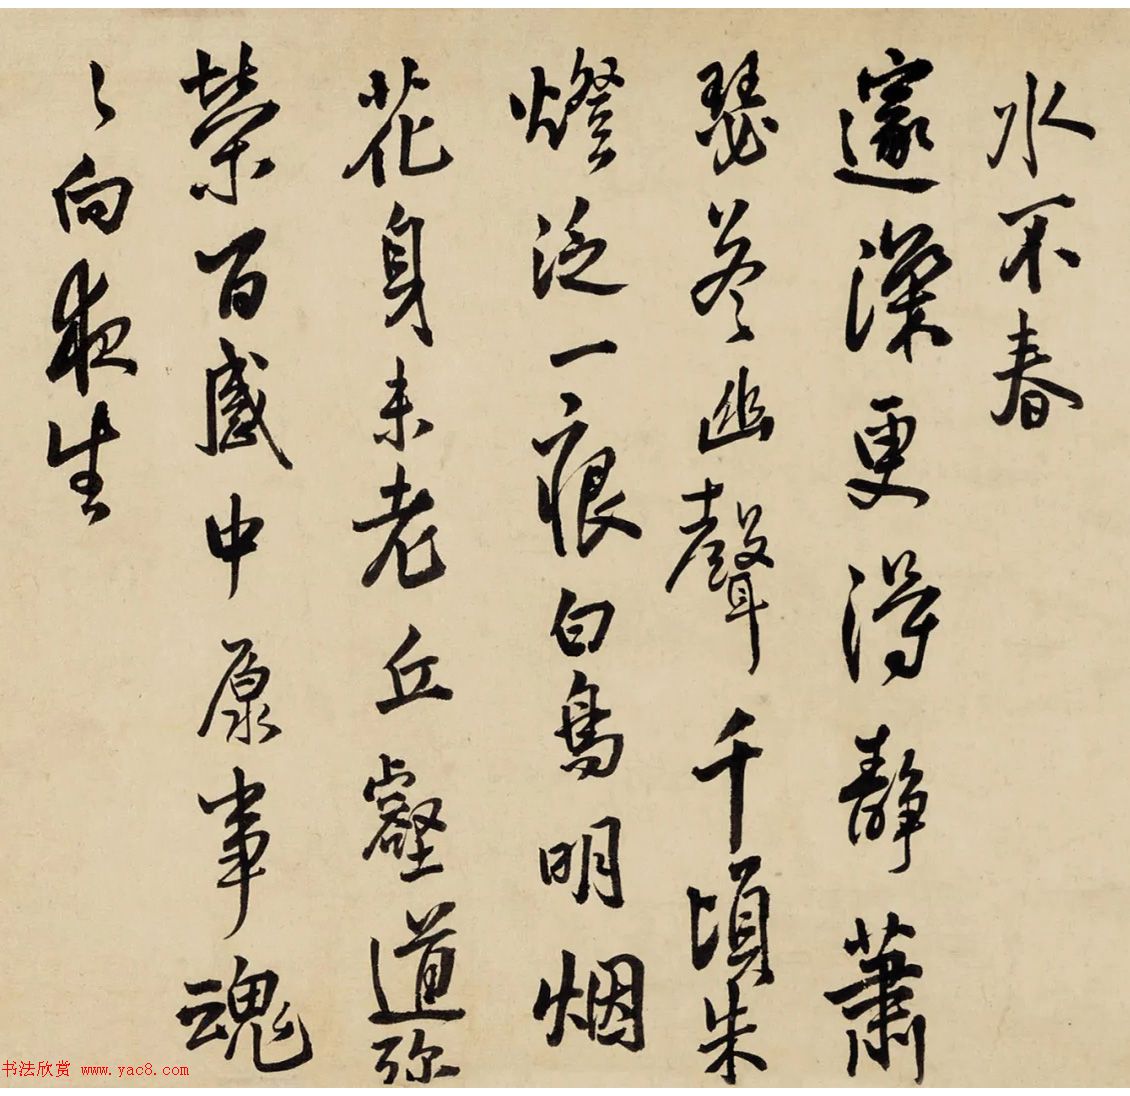 水不春
邃深更得静蕭
瑟荅幽聲千頃朱
燈泛一痕白鳥明烟
花身未老丘壑道弥
榮百感中原事魂
々向夜生
书法欣赏 www.yac8.com